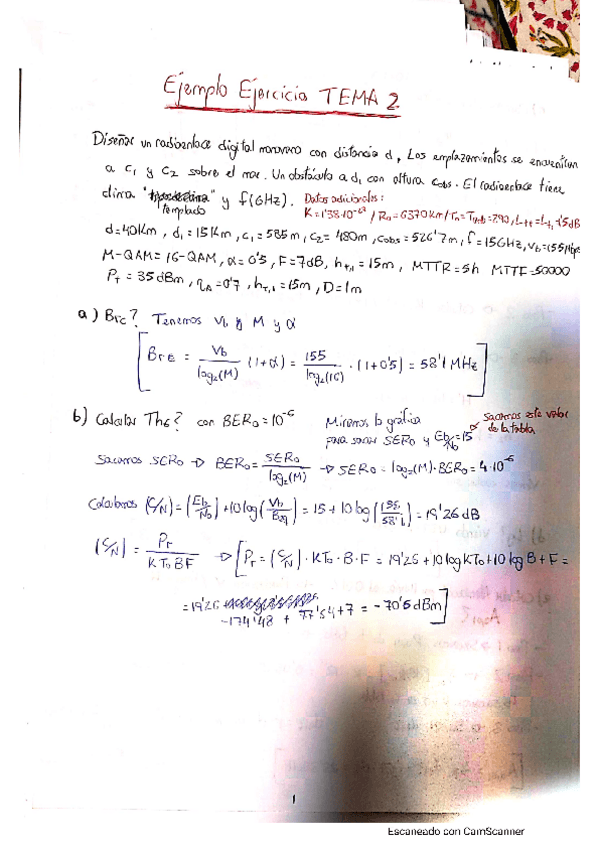 Ejemplo Ejercicio TEMA 2
Diseñar un radioenlace digital monovano con distancia d, Los emplazamientos se encuentran
a c1 y c2 sobre el mar. Un obstáculo a d1 con altura cobs. El radioenlace tiene
clima " templado " y f(GHz). Datos adicionales:
K = 1'38·10^-23 / R0 = 6370 km / T0 =
d = 40 Km, d1 = 15 Km, c1 = 585 m, c2 = 480 m, cobs = 526'7 m, f = 15 GHz, Vb = 155 Mbps
M-QAM = 16-QAM, α = 0'5, F = 7 dB, ht,1 = 15m, MTTR = 5h MTTF = 50000
PT = 35 dBm, ηA = 0'7, ht,1 = 15m, D = 1m
a) BRE? Tenemos Vb y M y α
[ BRE = Vb / log2(M) (1+α) = 155 / log2(16) · (1+0'5) = 58'1 MHz ]
b) Calcular Th6? con BER0 = 10^-6 Miramos la gráfica Sacamos este valor
para sacar SER0 y Eb/N0 = 15 de la tabla
Sacamos SER0 → BER0 = SER0 / log2(M) → SER0 = log2(M)·BER0 = 4·10^-6
Calculamos (C/N) = (Eb/N0) + 10 log (Vb/Beq) = 15 + 10 log (155/58'1) = 19'26 dB
(C/N) = Pr / KT0BF → [ Pr = (C/N) · KT0·B·F = 19'26 + 10 log KT0 + 10 log B + F =
= 19'26
-174'48 + 77'54 + 7 = -70'5 dBm ]
1
Escaneado con CamScanner